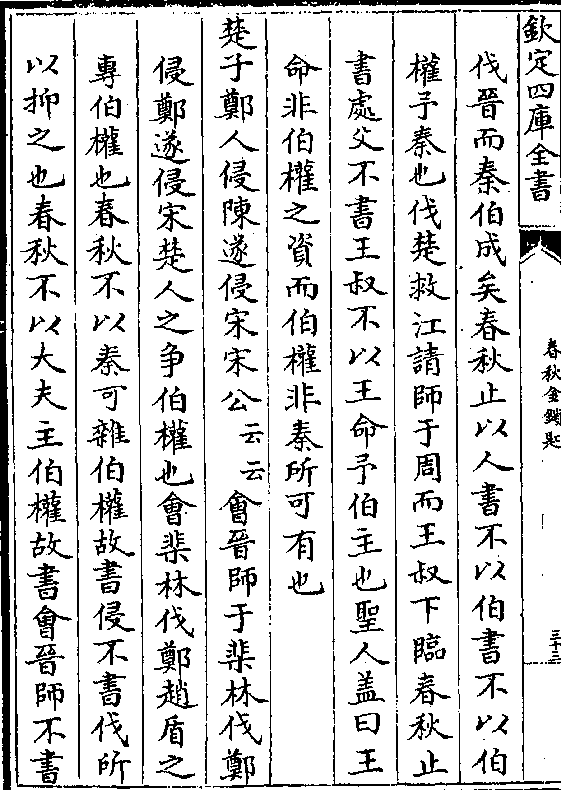 欽定四庫全書
春秋金鎖匙
三十三
伐晉而秦伯成矣春秋止以人書不以伯書不以伯
權予秦也伐楚救江請師于周而王叔下臨春秋止
書處父不書王叔不以王命予伯主也聖人盖曰王
命非伯權之資而伯權非秦所可有也
楚子鄭人侵陳遂侵宋宋公云云會晉師于棐林伐鄭
侵鄭遂侵宋楚人之争伯權也會棐林伐鄭趙盾之
專伯權也春秋不以秦可雜伯權故書侵不書伐所
以抑之也春秋不以大夫主伯權故書會晉師不書